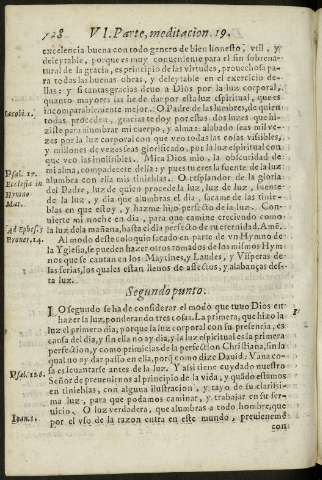 728 VI. Parte, meditacion. 19.
excelencia buena con todo genero de bien honesto, vtil, y
deleytable, porque es muy conueniente para el fin sobrena-
tural de la gracia, es principio de las virtudes, prouechosa pa-
ra todas las buenas obras, y deleytable en el exercicio de-
llas: y si tantas gracias deuo a Dios por la luz corporal,
quanto mayores las he de dar por esta luz espiritual, que es
Iacobi 1.
incomparablemente mejor. O Padre de las lumbres, de quien
todas proceden, gracias te doy por estas dos luzes que hi-
ziste para alumbrar mi cuerpo, y alma: alabado seas mil ve-
zes por la luz corporal con que veo todas las cosas visibles,
y millones de vezes seas glorificado, por la luz espiritual con
que veo las inuisibles. Mira Dios mio, la obscuridad de
Psal. 17.
mi alma, compadecete della: y pues tu eres la fuente de la luz
Ecclesia in
alumbra con ella mis tinieblas. O resplandor de la gloria
Hymno
del Padre, luz de quien procede la luz, luz de luz, fuente
Mat.
de la luz, y dia que alumbras el dia, sacame de las tinie-
blas en que estoy, y hazme hijo perfecto de la luz. Con-
uierte mi noche en dia, para que camine creciendo como
Ad Ephes. 5
la luz de la mañana, hasta el dia perfecto de tu eternidad. Amē.
Prouer. 14.
Al modo deste coloquio sacado en parte de vn Hymno de
la Yglesia, se pueden hazer otros tomados de los mismos Hym
nos que se cantan en los Maytines, y Laudes, y Visperas de
las ferias, los quales estan llenos de afectos, y alabanças des-
ta luz.
Segundo punto.
LO segundo se ha de considerar el modo que tuuo Dios en
hazer la luz, ponderando tres cosas. La primera, que hizo la
luz el primero dia; porque la luz corporal con su presencia, es
causa del dia, y sin ella no ay dia, y la luz espiritual es la primera
perfeccion, y como principio de la perfeccion Christiana, sin la
qual no ay dar passo en ella, porq̃ como dize Dauid: Vana co-
Psal. 126.
sa es leuantarse antes de la luz. Y assi tiene cuydado nuestro
Señor de preuenirnos al principio de la vida, y quãdo estamos
en tinieblas, con alguna ilustracion, y rayo de su clarissi-
ma luz, para que podamos caminar, y trabajar en su ser-
uicio. O luz verdadera, que alumbras a todo hombre, que
Ioan. 1.
por el vso de la razon entra en este mundo, preuieneme
con